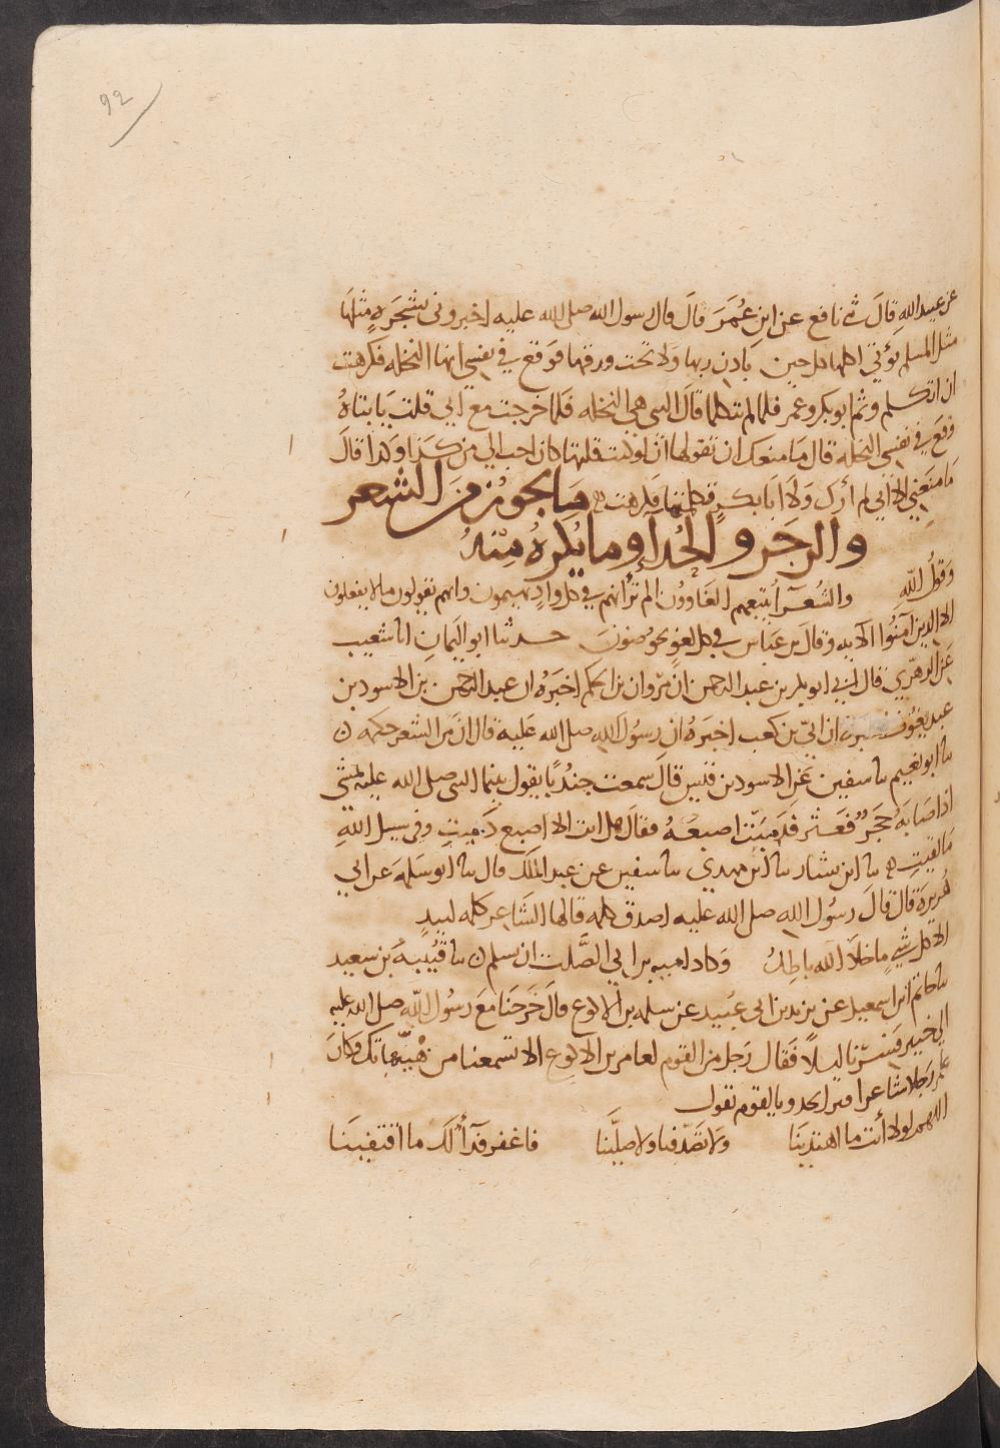 92
عن عبيد الله قال ثني نافع عن ابن عُمَرَ قال قال رسول الله صلى الله عليه اخبروني بشجَرَةٍ مثلها
مثل المسلم تؤتي اكلها كل حين باذن ربها ولا تحت ورقها فوقع في نفسي انها النخله فكرهت
ان اتكلم وثم ابو بكر وعمر فلما لم يتكلما قال النبي هي النخله فلما خرجت مع ابي قلت يا ابتاهُ
وقعَ في نفسي النخله قال ما منعك ان تقولها لو كنت قلتها كان احب الي من كذا وكذا قالَ
مَا منعَني الا اني لم أرك ولا ابا بكر تكلمتما فكرهت ه مَا يجوز من الشعر
والرجَز والحُداءِ وما يُكرهُ مِنْهُ
وقولُ اللهِ والشُعَرآءُ يتبعهم الغَاوُونَ الم ترَ انهم في كل وادٍ يهيمون وانهم يقولون ما لا يفعلون
الا الذين آمَنُوا الايه وقالَ بن عبَاس في كل لغوٍ يخوضونَ حدثنا ابو اليَمانِ انا شعيب
عَن الزهرّي قال اخبرني ابو بكر بن عبد الرحمن ان مروان بن الحكم اخبَرَهُ ان عبد الرحمن بن الاسود بن
عبد يغوث اخبره ان ابيّ بن كعب اخبَرَهُ ان رسُولَ الله صلى الله عَليه قال ان من الشعر حكمه ن
نا ابو نعيم نا سفين عَن الاسود بن قيسٍ قالَ سمعت جندُبًا يقول بينما النبي صلى الله عليه يمشي
اذ اصَابَهُ حجَرٌ فعَثر فدَميَت اصبعُهُ فقال هل انت الا اصبع دَميتِ وفي سبيل اللهِ
مَا لقيتِ ه نا ابن بشار نا ابن مهدي نا سفين عن عبد الملك قال نا ابو سَلمهَ عن ابي
هُريرَة قال قالَ رسُول الله صلى الله عليه اصدق كلمه قالها الشَاعِر كلمه لبيدٍ
الا كل شيءٍ ما خلا الله باطِلُ وكاد اميه بن ابي الصَّلت ان يسلم ن نا قُتيبهُ بن سعيد
نا حاتم بن اسمعيل عن يزيد بن ابي عبَيد عن سلمه بن الاكوع قالَ خرَجنا معَ رسُول اللهِ صلى الله عليه
الى خيبر فسِرْنا ليلاً فقال رَجل من القوم لعامر بن الاكوعِ الا تسمعنا من هُنَيّهاتك وكانَ
عامر رَجلا شاعرا فنزل يحدو بالقوم يقول
اللهم لولا أنت ما اهتدينَا ولا تصَدّقنا ولا صلّينا فاغفر فدآءً لَك ما اقتفينَا